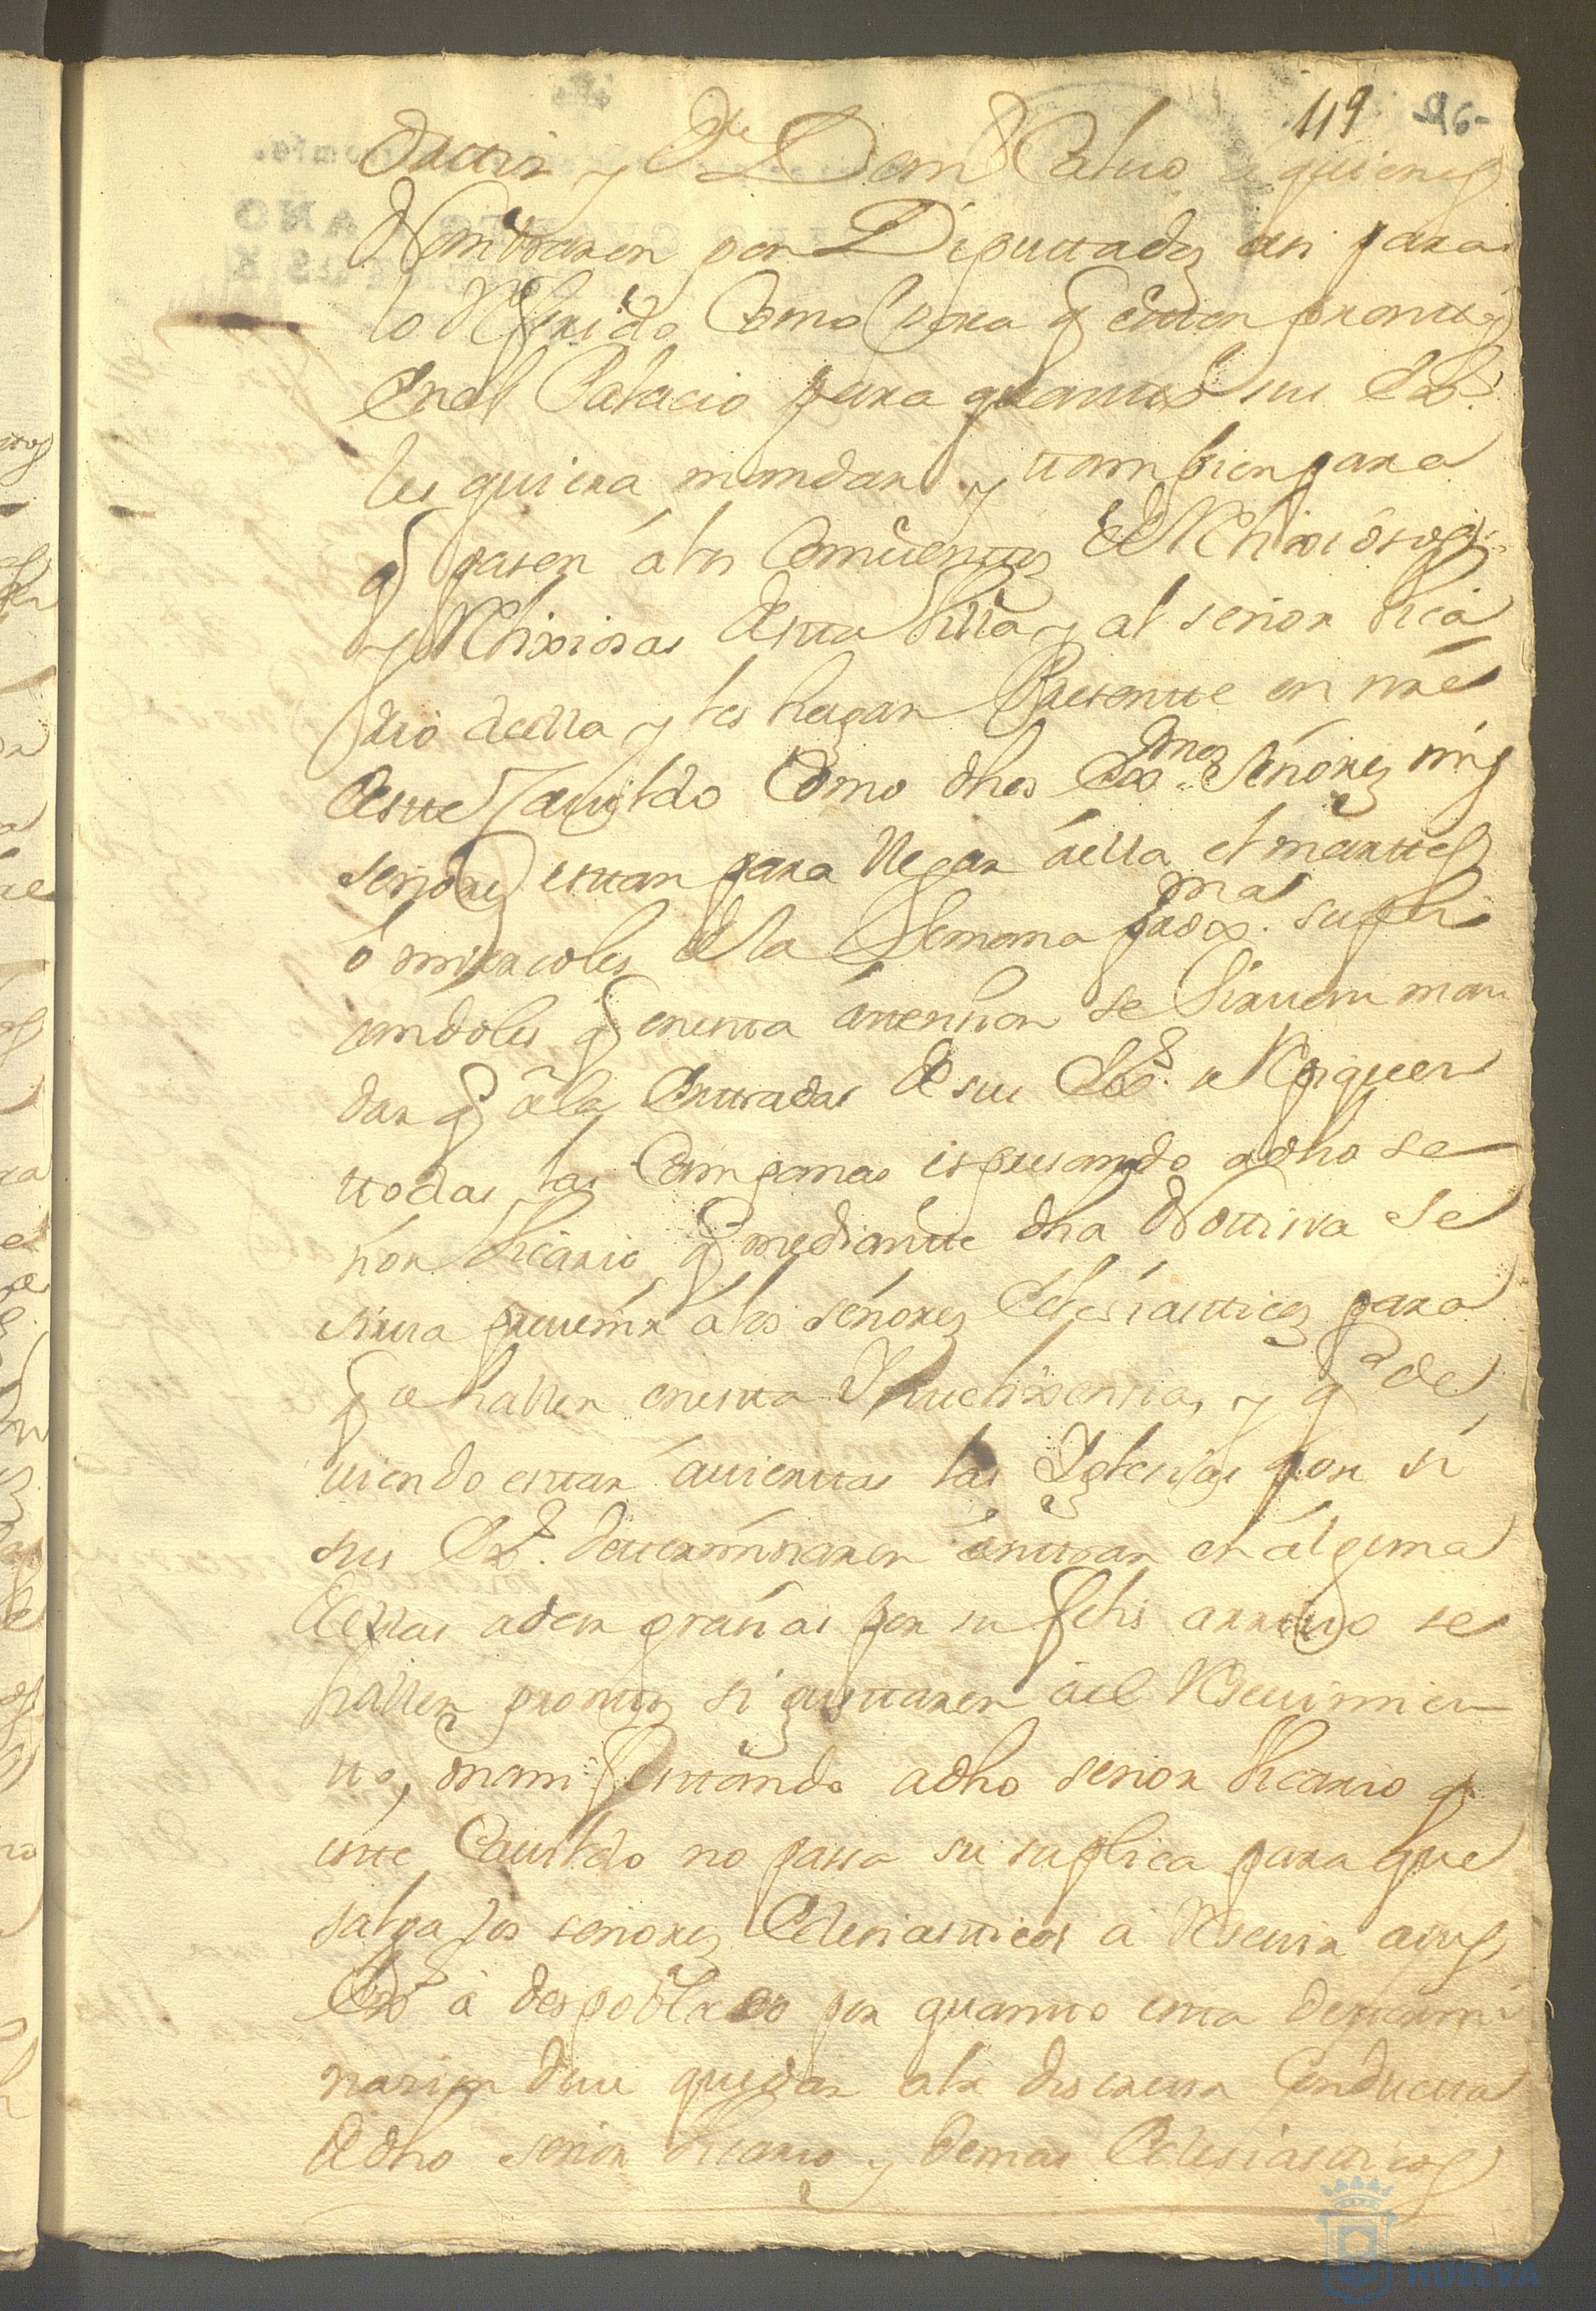 119 96-
y Dn Calvo a quienes
Nombraron por Diputtados asi para
lo Referido Como para q esten promttos
en el Palacio para quantto sus Exs.
les quiera mandar y ttambien para
q pasen â los Comventtos de Relixiosos
y Relixiosas desta Villa y al señor Vica
rio della y les hagan Presentte en nre
deste Cavildo Como dhos Exmos Señores mis
señores esttan para llegar âella el marttes
ô miercoles de la Semana proxma supli
candoles q en esta âttenzion se Sirvan man
dar q â la Enttradas de sus Exs. se Repiquen
ttodas las Campanas espresando a dho se
ñor Vicario q mediantte dha Nottisia se
sirva prevenir â los señores Eclesiastticos para
q se hallen en esta Ynttelixensia, y q de
viendo esttar âviertas las Yglesias por si
sus Exs. detterminaren ênttrar en âlguna
dellas a dar grasias por su felis arrivo se
hallen prontos si gusttaren âel Resevimien
tto, manifesttando a dho señor Vicario q
este Cavildo no passa su suplica para que
salga los señores Eclesiastticos a Resevir a sus
Exs â despoblado por quantto esta determi
nasion deve quedar a la discreta Conductta
de dho señor Vicario y demas Eclesiasticos
HUELVA